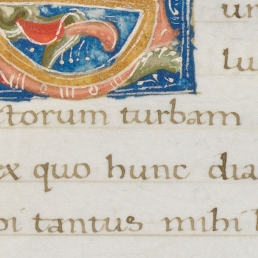 un
lu
ctorum turbam
ex quo hunc dia
bi tantus mihi l